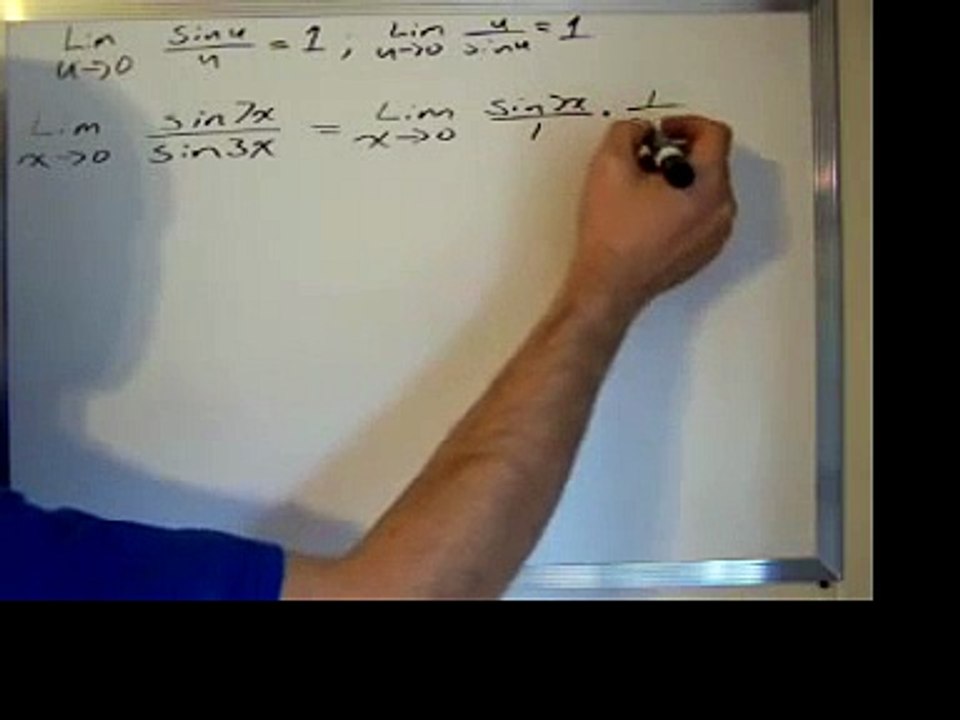 Lim u→0 sinu/u = 1 ; Lim u→0 u/sinu = 1
Lim x→0 sin7x/sin3x = Lim x→0 sin7x/1 · 1/